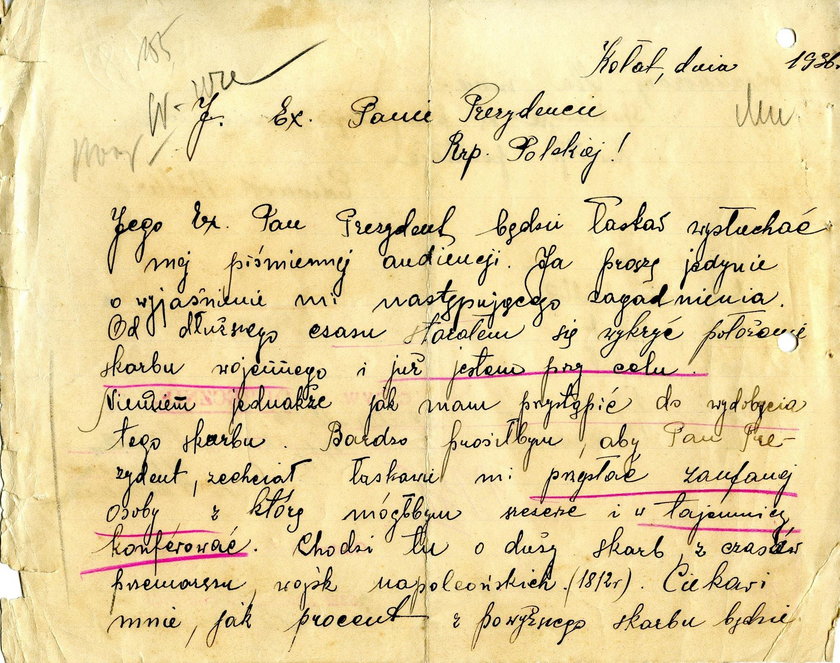 155
Kołat, dnia 1936.
J. Ex. Panie Prezydencie
Rzp. Polskiej!
Jego Ex. Pan Prezydent będzie łaskaw wysłuchać
mej piśmiennej audiencji. Ja proszę jedynie
o wyjaśnienie mi następującego zagadnienia.
Od dłuższego czasu starałem się wykryć położenie
skarbu wojennego i już jestem przy celu.
Niewiem jednakże jak mam przystąpić do wydobycia
tego skarbu. Bardzo prosiłbym, aby Pan Pre-
zydent, zechciał łaskawie mi przysłać zaufanej
osoby z którą mógłbym szczerze i w tajemnicy
konferować. Chodzi tu o duży skarb, z czasów
przemarszu, wojsk napoleońskich. (1812r). Ciekawi
mnie, jak procent z powyższego skarbu będzie